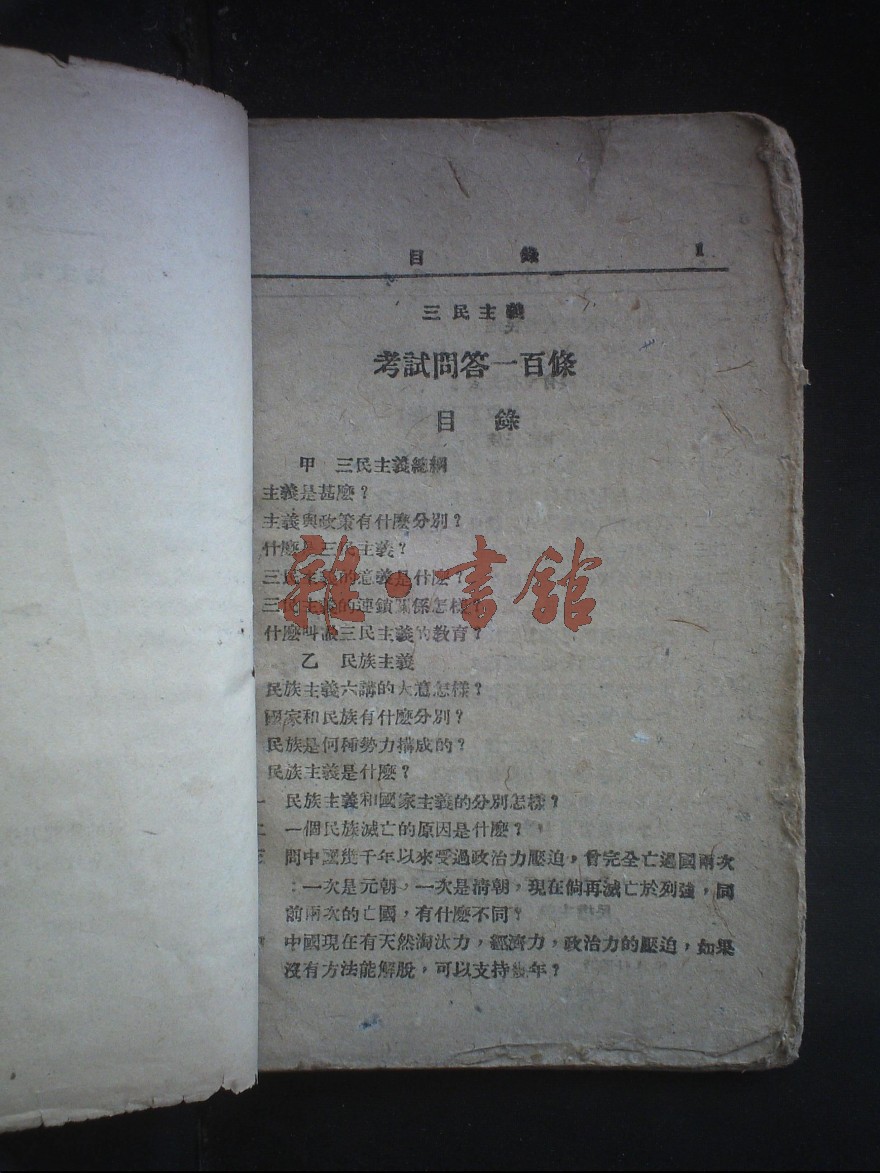 目錄 1
三民主義
考試問答一百條
目錄
甲 三民主義總綱
主義是甚麽？
主義與政策有什麽分別？
什麽是三民主義？
三民主義的意義是什麽？
三民主義的連鎖關係怎樣？
什麽叫做三民主義的教育？
乙 民族主義
民族主義六講的大意怎樣？
國家和民族有什麽分別？
民族是何種勢力構成的？
民族主義是什麽？
一 民族主義和國家主義的分別怎樣？
二 一個民族滅亡的原因是什麽？
三 問中國幾千年以來受過政治力壓迫，曾完全亡過國兩次
：一次是元朝，一次是清朝，現在倘再滅亡於列強，同
前兩次的亡國，有什麽不同？
中國現在有天然淘汰力，經濟力，政治力的壓迫，如果
沒有方法能解脫，可以支持幾年？
雜·書館